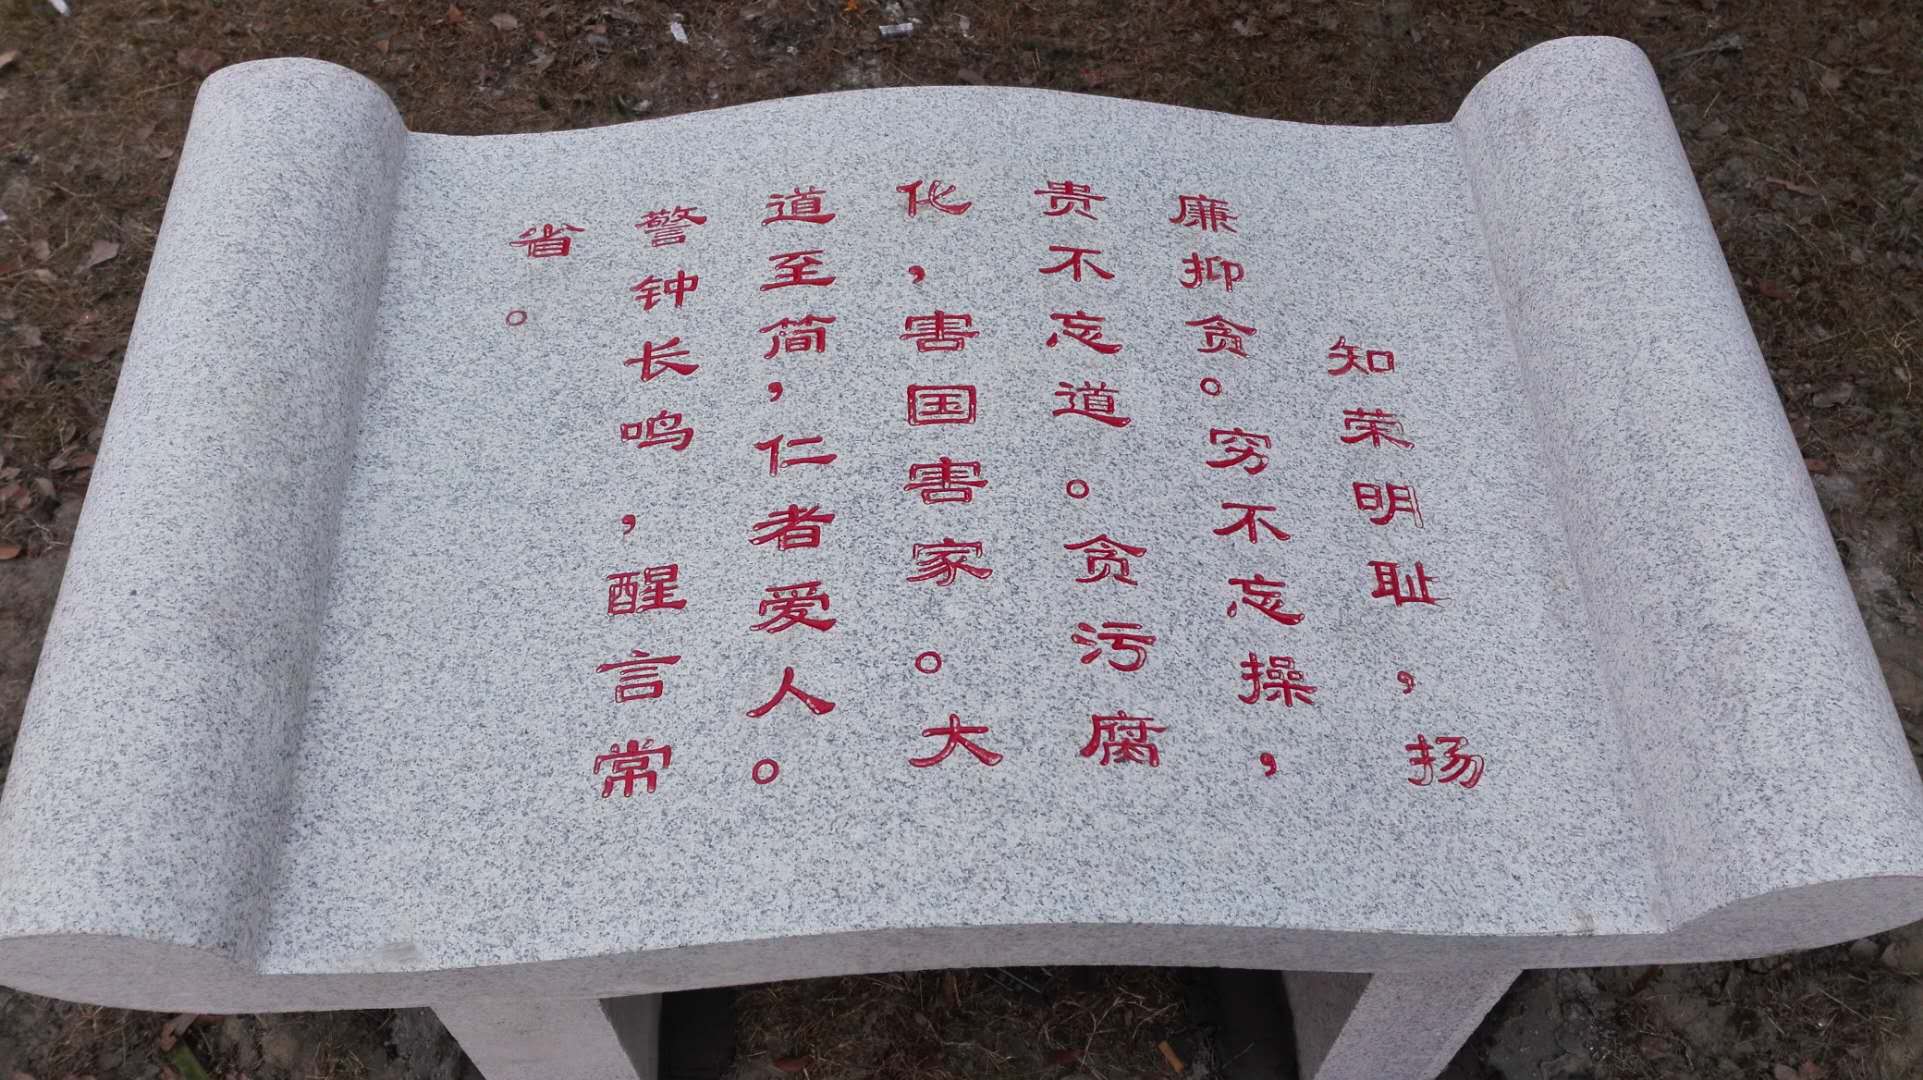 知荣明耻，扬
廉抑贪。穷不忘操，
贵不忘道。贪污腐
化，害国害家。大
道至简，仁者爱人。
警钟长鸣，醒言常
省。